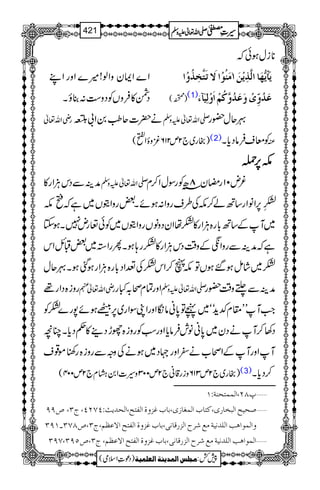 سیرتِ مصطفیٰ صلی اللہ تعالیٰ علیہ وسلم 421
نازل ہوئی کہ
یٰۤاَیُّهَا الَّذِیْنَ اٰمَنُوْا لَا تَتَّخِذُوْا عَدُوِّیْ وَ عَدُوَّكُمْ اَوْلِیَآءَ (1) (ممتحنہ)
اے ایمان والو! میرے اور اپنے دشمن کافروں کو دوست نہ بناؤ۔
بہرحال حضور صلی اللہ تعالیٰ علیہ وسلم نے حضرت حاطب بن ابی بلتعہ رضی اللہ تعالیٰ عنہ کو معاف فرما دیا۔ (2) (بخاری ج۲ ص۶۱۲ غزوۃ الفتح)
مکہ پر حملہ
غرض ۱۰ رمضان ۸ھ کو رسول اکرم صلی اللہ تعالیٰ علیہ وسلم مدینہ سے دس ہزار کا
لشکر پر انوار ساتھ لے کر مکہ کی طرف روانہ ہوئے۔ بعض روایتوں میں ہے کہ فتح مکہ
میں آپ کے ساتھ بارہ ہزار کا لشکر تھا ان دونوں روایتوں میں کوئی تعارض نہیں۔ ہوسکتا
ہے کہ مدینہ سے روانگی کے وقت دس ہزار کا لشکر رہا ہو۔ پھر راستہ میں بعض قبائل اس
لشکر میں شامل ہو گئے ہوں تو مکہ پہنچ کر اس لشکر کی تعداد بارہ ہزار ہو گئی ہو۔ بہرحال
مدینہ سے چلتے وقت حضور صلی اللہ تعالیٰ علیہ وسلم اور تمام صحابہ کبار رضی اللہ تعالیٰ عنہم روزہ دار تھے
جب آپ ”مقام کدید“ میں پہنچے تو پانی مانگا اور اپنی سواری پر بیٹھے ہوئے پورے لشکر کو
دکھا کر آپ نے دن میں پانی نوش فرمایا اور سب کو روزہ چھوڑ دینے کا حکم دیا۔ چنانچہ
آپ اور آپ کے اصحاب نے سفر اور جہاد میں ہونے کی وجہ سے روزہ رکھنا موقوف
کر دیا۔ (3) (بخاری ج۲ ص۶۱۳ و زرقانی ج۲ ص۳۰۰ و سیرت ابن ہشام ج۲ ص۴۰۰)
......پ۲۸،الممتحنة:۱
......صحیح البخاری،کتاب المغازی،باب غزوة الفتح،الحدیث:۴۲۷۴، ج۳، ص۹۹
والمواهب اللدنیة مع شرح الزرقانی،باب غزوة الفتح الاعظم،ج۳،ص۳۷۸۔۳۹۱
......المواهب اللدنیة مع شرح الزرقانی،باب غزوة الفتح الاعظم، ج۳،ص۳۹۵،۳۹۷
پیش کش: مجلس المدينة العلمية (دعوتِ اسلامی)